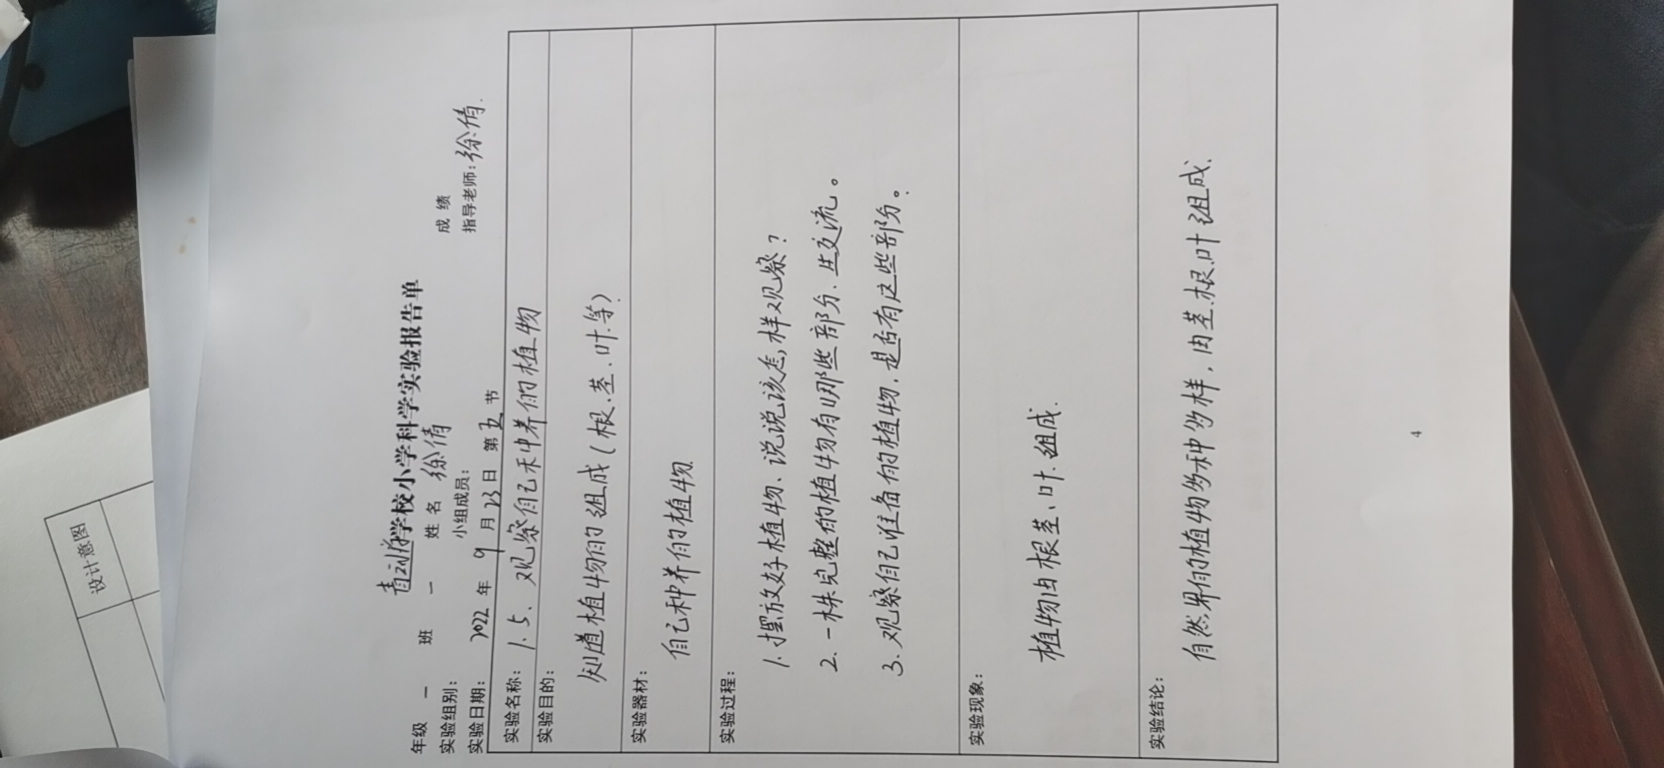 学校小学科学实验报告单
年级 一 班 一 姓名 徐倩 成绩
实验组别: 小组成员: 指导老师:徐倩.
实验日期: 2022 年 9 月 23 日 第 节
实验名称: 1.5. 观察自己种养的植物
实验目的:
知道植物的组成(根.茎.叶.等).
实验器材:
自己种养的植物
实验过程:
1.摆放好植物、说说该怎样观察?
2.一株完整的植物有哪些部分.并交流。
3.观察自己准备的植物.是否有这些部分。
实验现象:
植物由根茎、叶.组成.
实验结论:
自然界的植物多种多样,由茎.根.叶组成.
4
设计意图